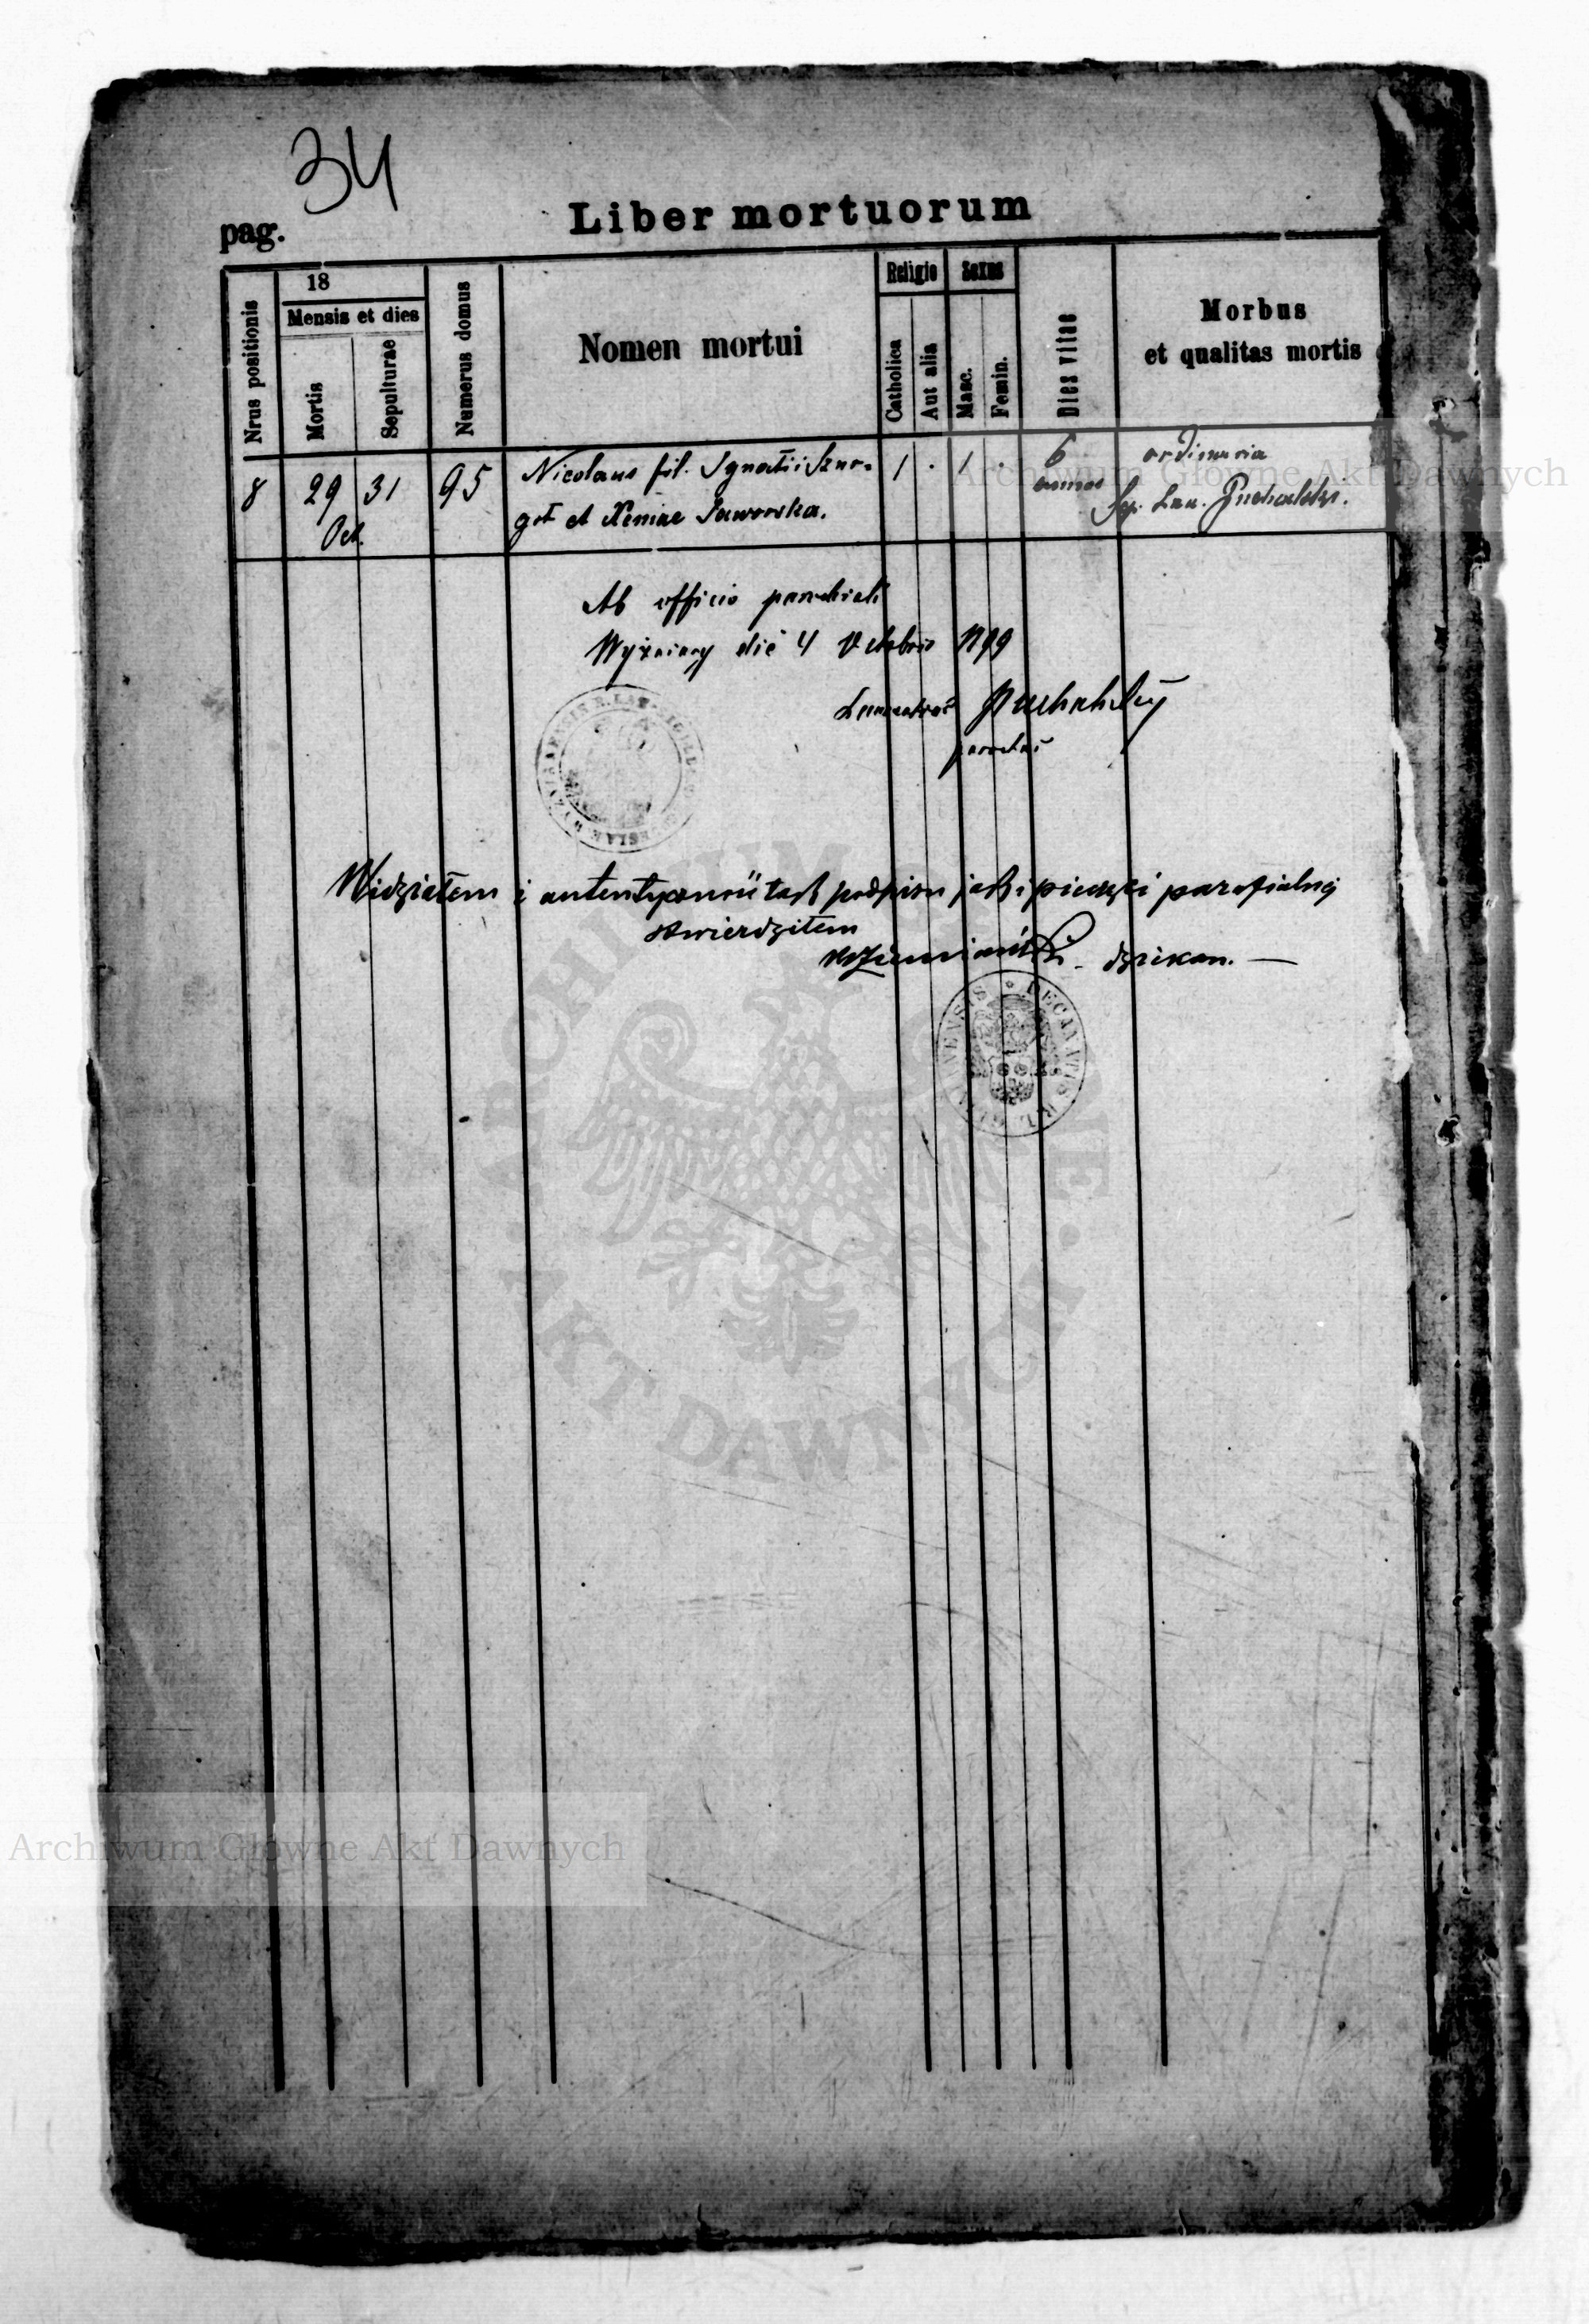 34
pag.
Liber mortuorum
Nrus positionis
18
Mensis et dies
Mortis
Sepulturae
Numerus domus
Nomen mortui
Religio
Catholica
Aut alia
Sexus
Masc.
Femin.
Dies vitae
Morbus
et qualitas mortis
8 29 31 95 Nicolaus fil. Ignatii Szur- 1 . 1 . 6 ordinaria
Oct. got et Xeniae Jaworska. annos Sep. Lau. Puchalski.
Ab officio parochiali
Wyżniany die 4 Octobris 1899
Laurentius Puchalski
parochus
Widziałem i autentyczność tak podpisu jak i pieczęci parafialnej
stwierdziłem
dziekan. —
DECANATUS R. L.
ARCHIWUM GŁÓWNE
AKT DAWNYCH
Archiwum Główne Akt Dawnych
Archiwum Główne Akt Dawnych